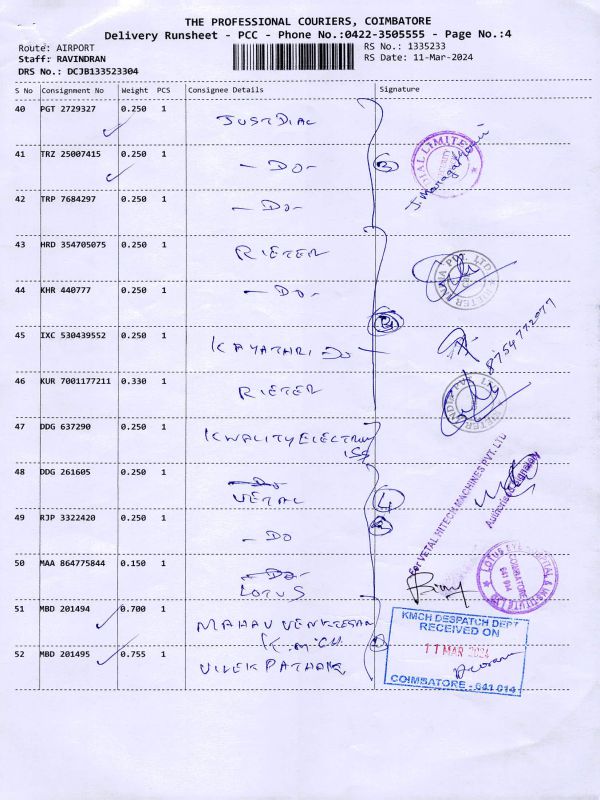 THE PROFESSIONAL COURIERS, COIMBATORE
Delivery Runsheet - PCC - Phone No.:0422-3505555 - Page No.:4
Route: AIRPORT
RS No.: 1335233
Staff: RAVINDRAN
RS Date: 11-Mar-2024
DRS No.: DCJB133523304
S No Consignment No Weight PCS Consignee Details Signature
40 PGT 2729327 0.250 1 JUSTDIAL
41 TRZ 25007415 0.250 1 - DO -
42 TRP 7684297 0.250 1 - DO -
43 HRD 354705075 0.250 1 RIETER
44 KHR 440777 0.250 1 - DO -
45 IXC 530439552 0.250 1 KAYATHRI DO
8754772077
46 KUR 7001177211 0.330 1 RIETER
47 DDG 637290 0.250 1 KWALITY ELECTRON
48 DDG 261605 0.250 1 VETAL
4
49 RJP 3322420 0.250 1 - DO
For VETAL HITECH MACHINES PVT. LTD
Authorised Signatory
50 MAA 864775844 0.150 1 LOTUS
LOTUS EYE HOSPITAL & INSTITUTE LTD
COIMBATORE
641 014
51 MBD 201494 0.700 1 MAHAV VENKTESAN
K.M.C.H.
52 MBD 201495 0.755 1 VIVEK PATHAK
KMCH DESPATCH DEPT
RECEIVED ON
11 MAR 2024
COIMBATORE - 641 014